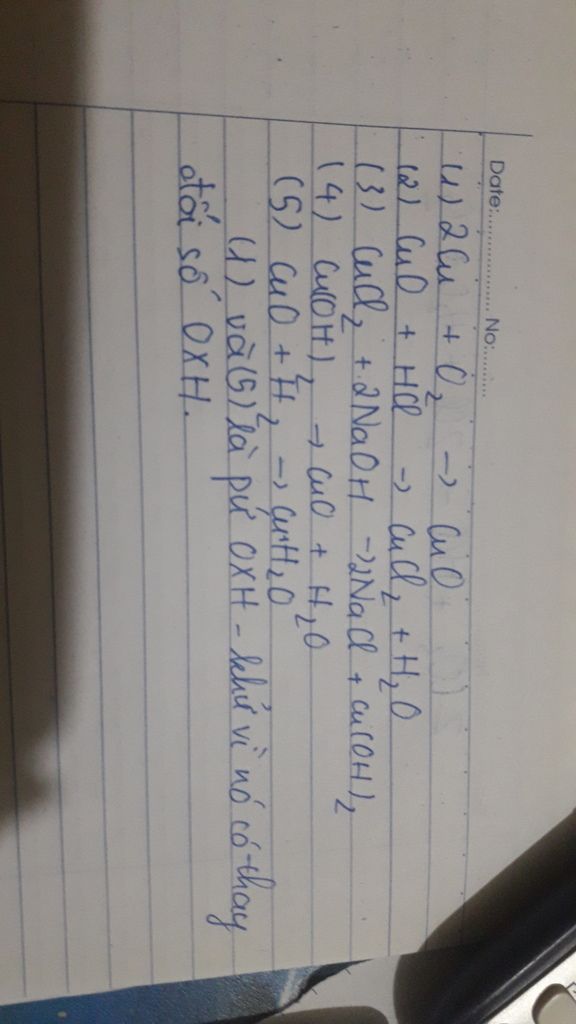 Date:.................. No:..........
(1) 2Cu + O2 → CuO
(2) CuO + HCl → CuCl2 + H2O
(3) CuCl2 + 2NaOH → 2NaCl + Cu(OH)2
(4) Cu(OH)2 → CuO + H2O
(5) CuO + H2 → CuH2O
(1) và (5) là pứ OXH - khử vì nó có thay
đổi số OXH.